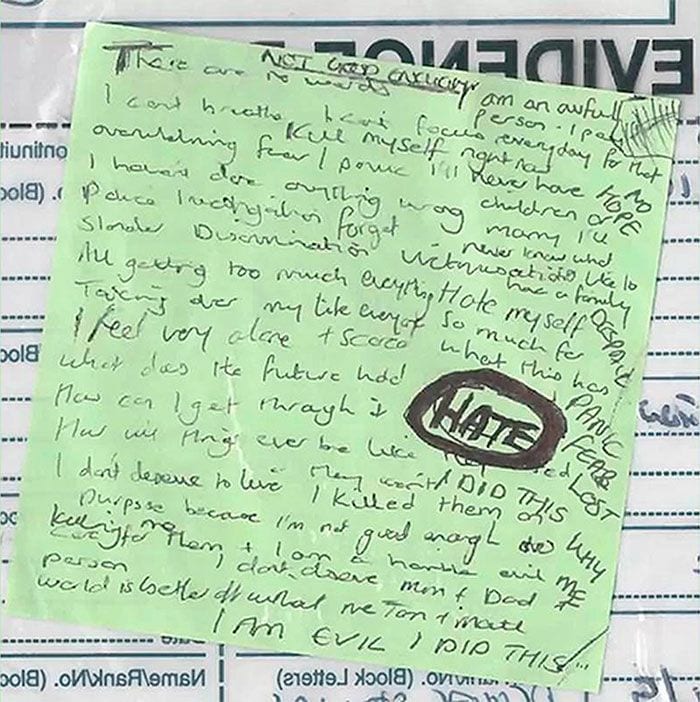 EVIDENCE
NOT GOOD ENOUGH
There are no words
I am an awful person. I pay
I cant breathe I cant focus everyday for that
Kill myself right now
overwhelming fear / panic I'll never have NO HOPE
I haven't done anything wrong children or
Police Investigation forget marry I'll
never know what
Slander Discrimination Victimisation its like to
have a family
All getting too much everything Hate myself DESPAIR
Taking over my life everyday so much for
I feel very alone + scared what this has
What does the future hold PANIC
How can I get through it HATE FEAR
How will things ever be like LOST
I DID THIS
I don't deserve to live I killed them on WHY
purpose because I'm not good enough to ME
care for them + I am a horrible evil
Killing me
person I dont deserve mum + Dad
world is better off
I AM EVIL I DID THIS
Name/Rank/No. (Block
No. (Block Letters)